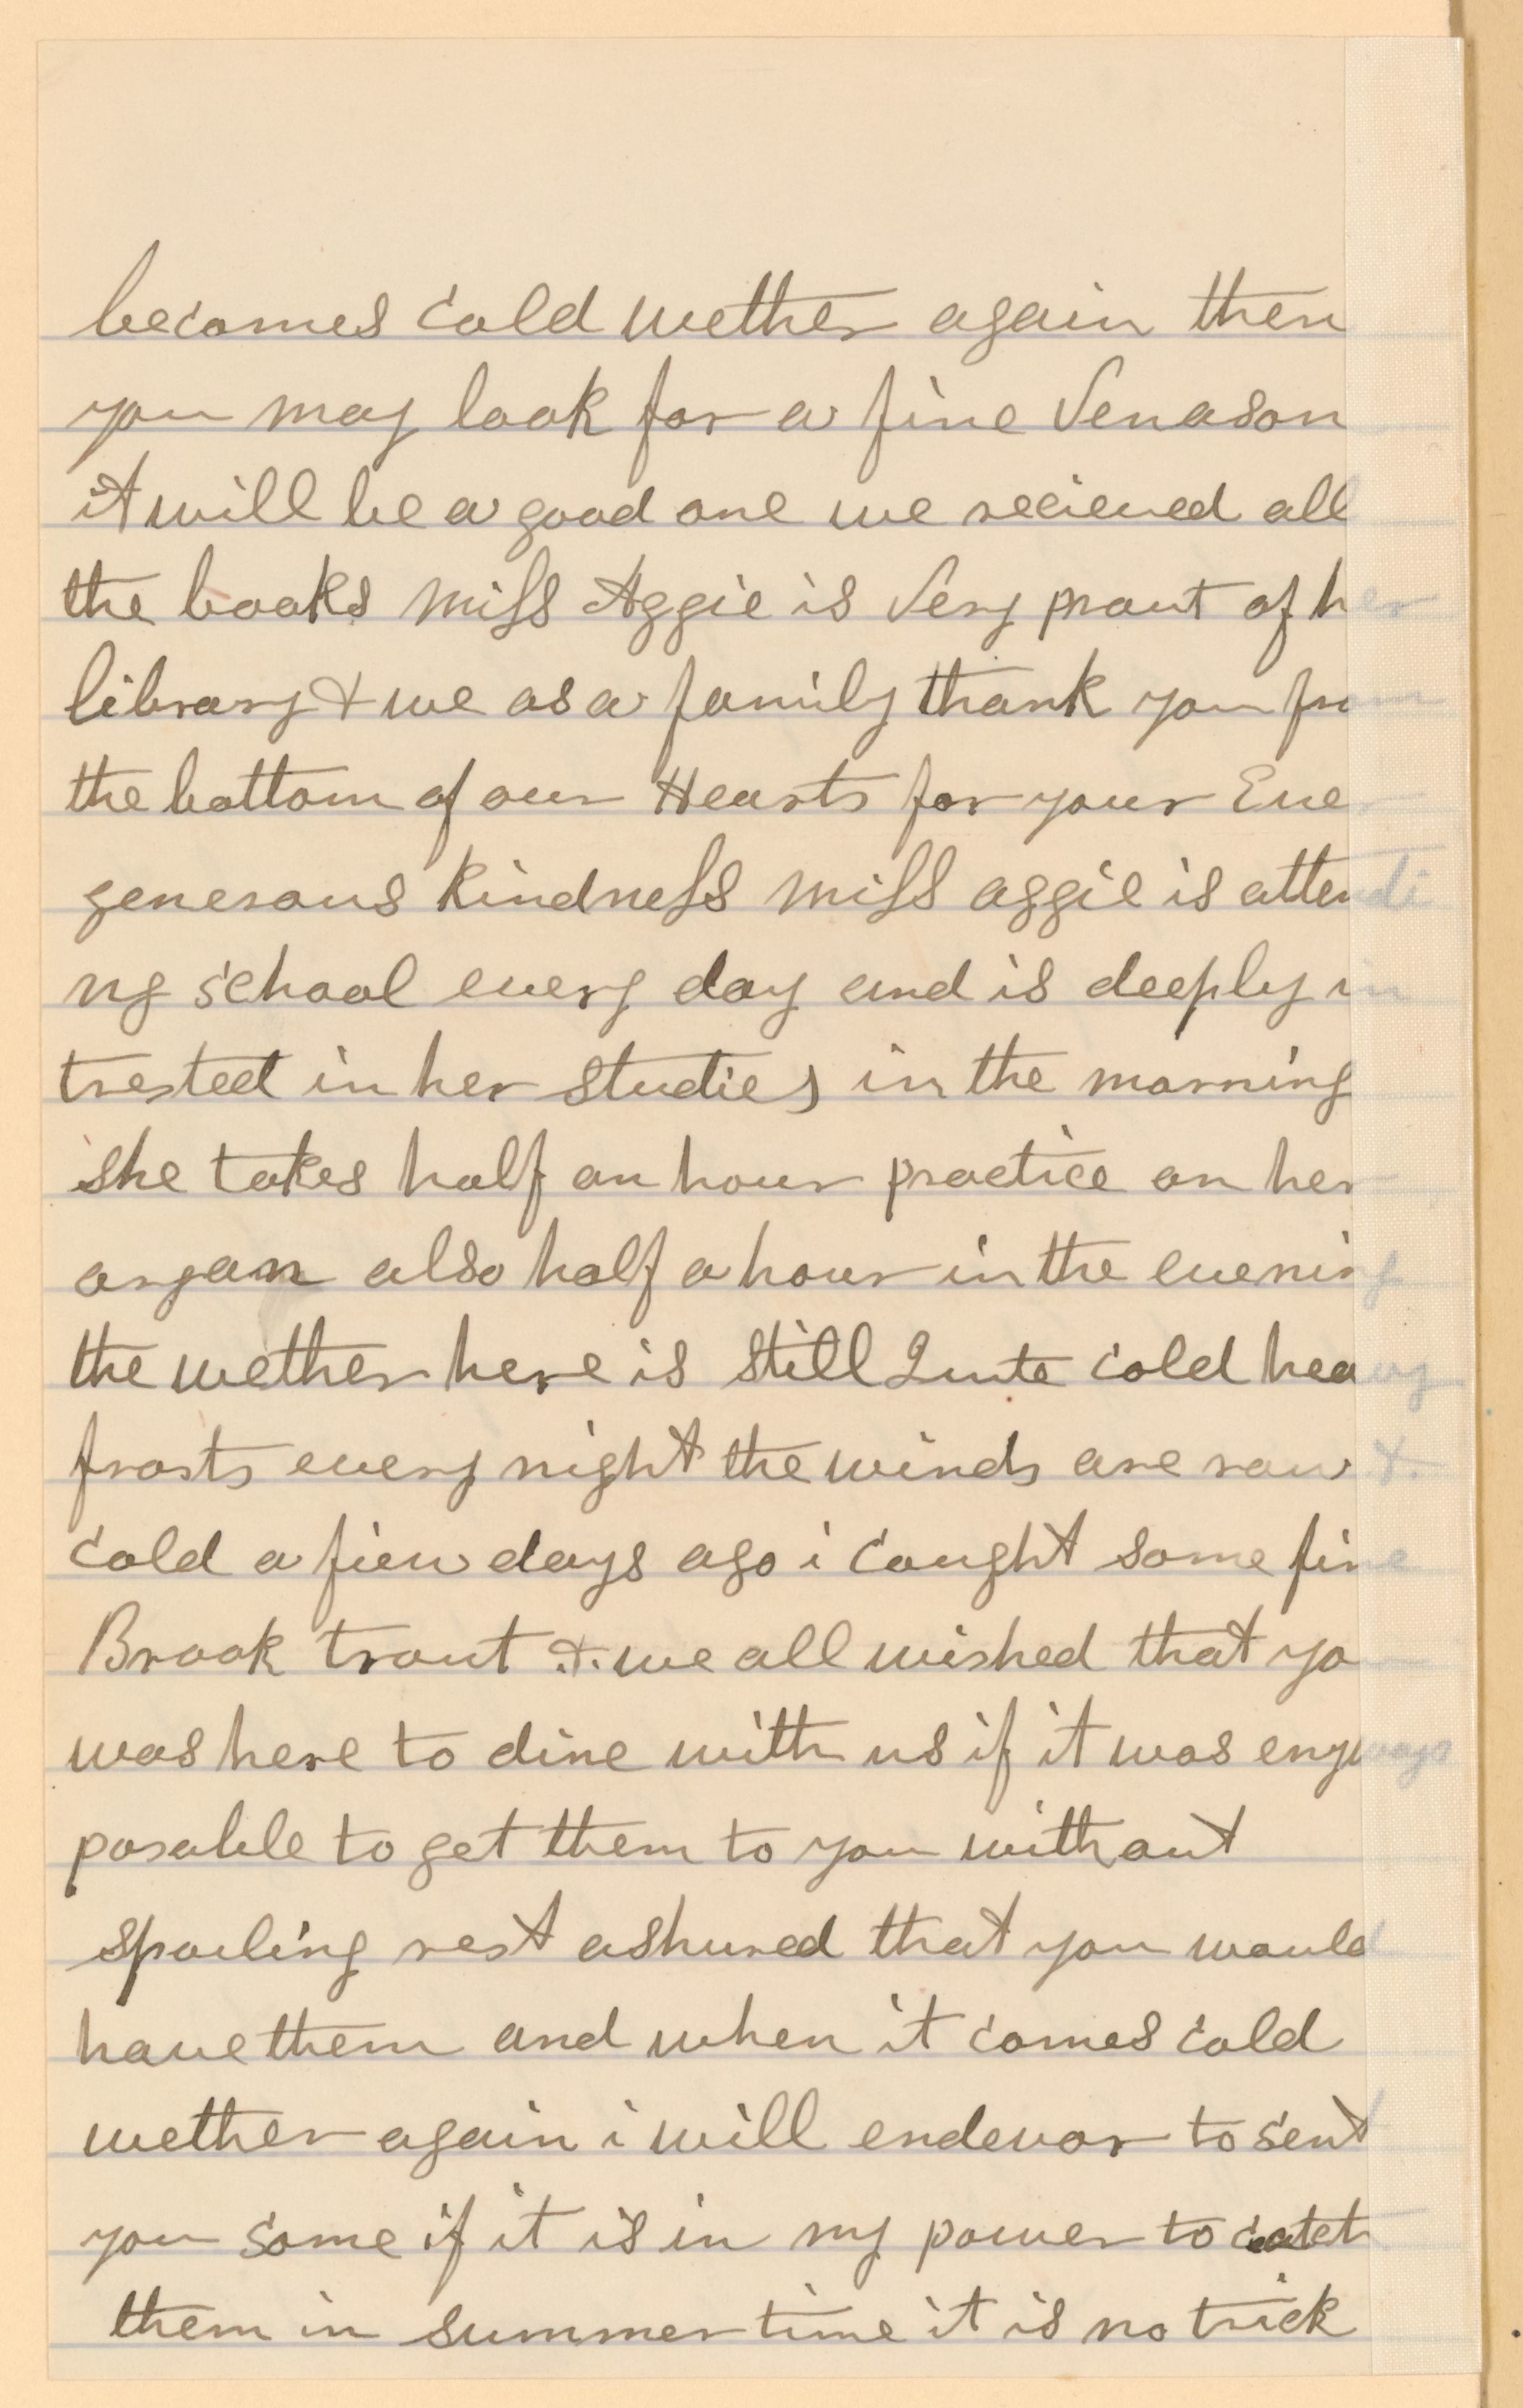 becomes cold wether again then
you may look for a fine Venason
it will be a good one we recieved all
the books miss Aggie is Very prout of her
library & we as a family thank you from
the bottom of our Hearts for your Ever
generous kindness miss aggie is attendi
ng school every day and is deeply in
trested in her studies in the morning
she takes half an hour practice on her
organ also half a hour in the evening
the wether here is still Quite cold heavy
frosts every night the winds are raw &
cold a fiew days ago i caught some fine
Brook trout & we all wished that you
was here to dine with us if it was enyways
posable to get them to you without
spoiling rest ashured that you would
have them and when it comes cold
wether again i will endevor to sent
you some if it is in my power to catch
them in summer time it is no trick